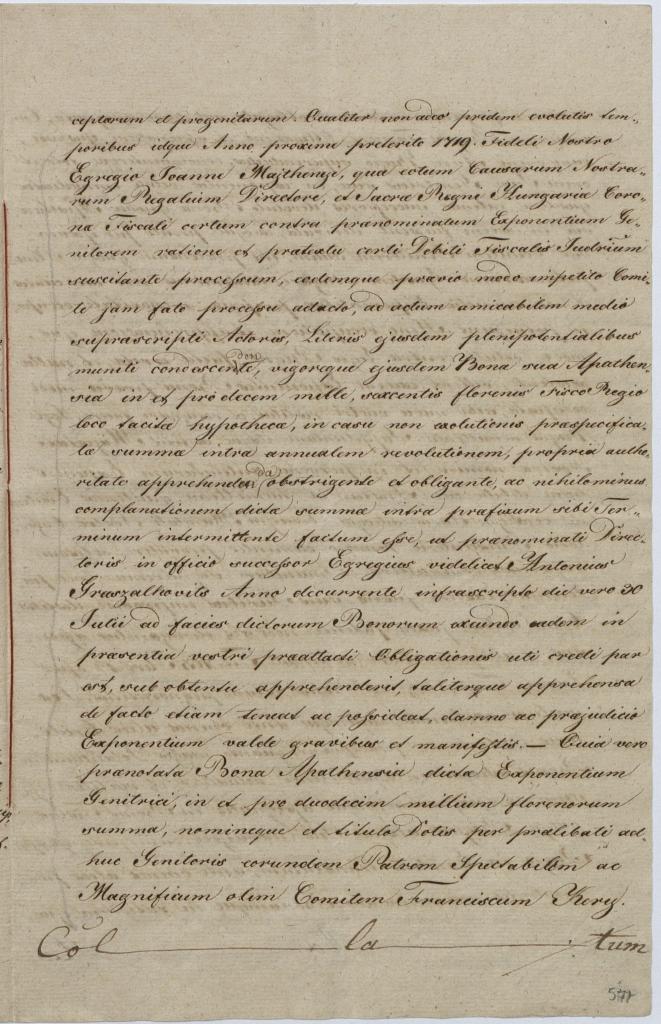 ceptorum et progenitarum. Qualiter non adeo pridem evolutis tem„
poribus idque Anno proxime preterito 1719. Fideli Nostro
Egregio Joanne Majthenyi, qua eotum Causarum Nostra„
rum Regalium Directore, et Sacræ Regni Hungariæ Coro„
næ Fiscali certum contra prænominatum Exponentium Ge„
nitorem ratione et prætextu certi Debiti Fiscalis
suscitante processum, eodemque prævio modo impetito Comi„
te jam fato processu adacto, ad actum amicabilem medio
suprascripti Actoris, Literis ejusdem plenipotentialibus
muniti condescendente, vigoreque ejusdem Bona sua Apathen„
sia in et pro decem mille, saxcentis florenis Fisco Regio
loco tacitæ hypothecæ, in casu non exolutionis præspecifica„
tæ summæ intra annualem revolutionem, propria autho„
ritate apprehendenda obstrigente et obligante, ac nihilominus
complanationem dictæ summæ intra præfixum sibi Ter„
minum intermittente factum esse, ut prænominati Direc„
toris in officio successor Egregius videlicet Antonius
Graszalkovits Anno decurrente infrascripto die vero 30
Julii ad facies dictorum Bonorum exeundo eadem in
præsentia vestri præattacti Obligationis uti credi par
est, sub obtentu apprehenderit, taliterque apprehensa
de facto etiam teneat ac possideat, damno ac præjudicio
Exponentium valde gravibus et manifestis. — Quia vero
prænotata Bona Apathensia dictæ Exponentium
Genitrici, in et pro duodecim millium florenorum
summa, nomineque et titulo Dotis per prælibati ad„
huc Genitoris eorundem Patrem Spectabilem ac
Magnificum olim Comitem Franciscum Kery.
Col la tum